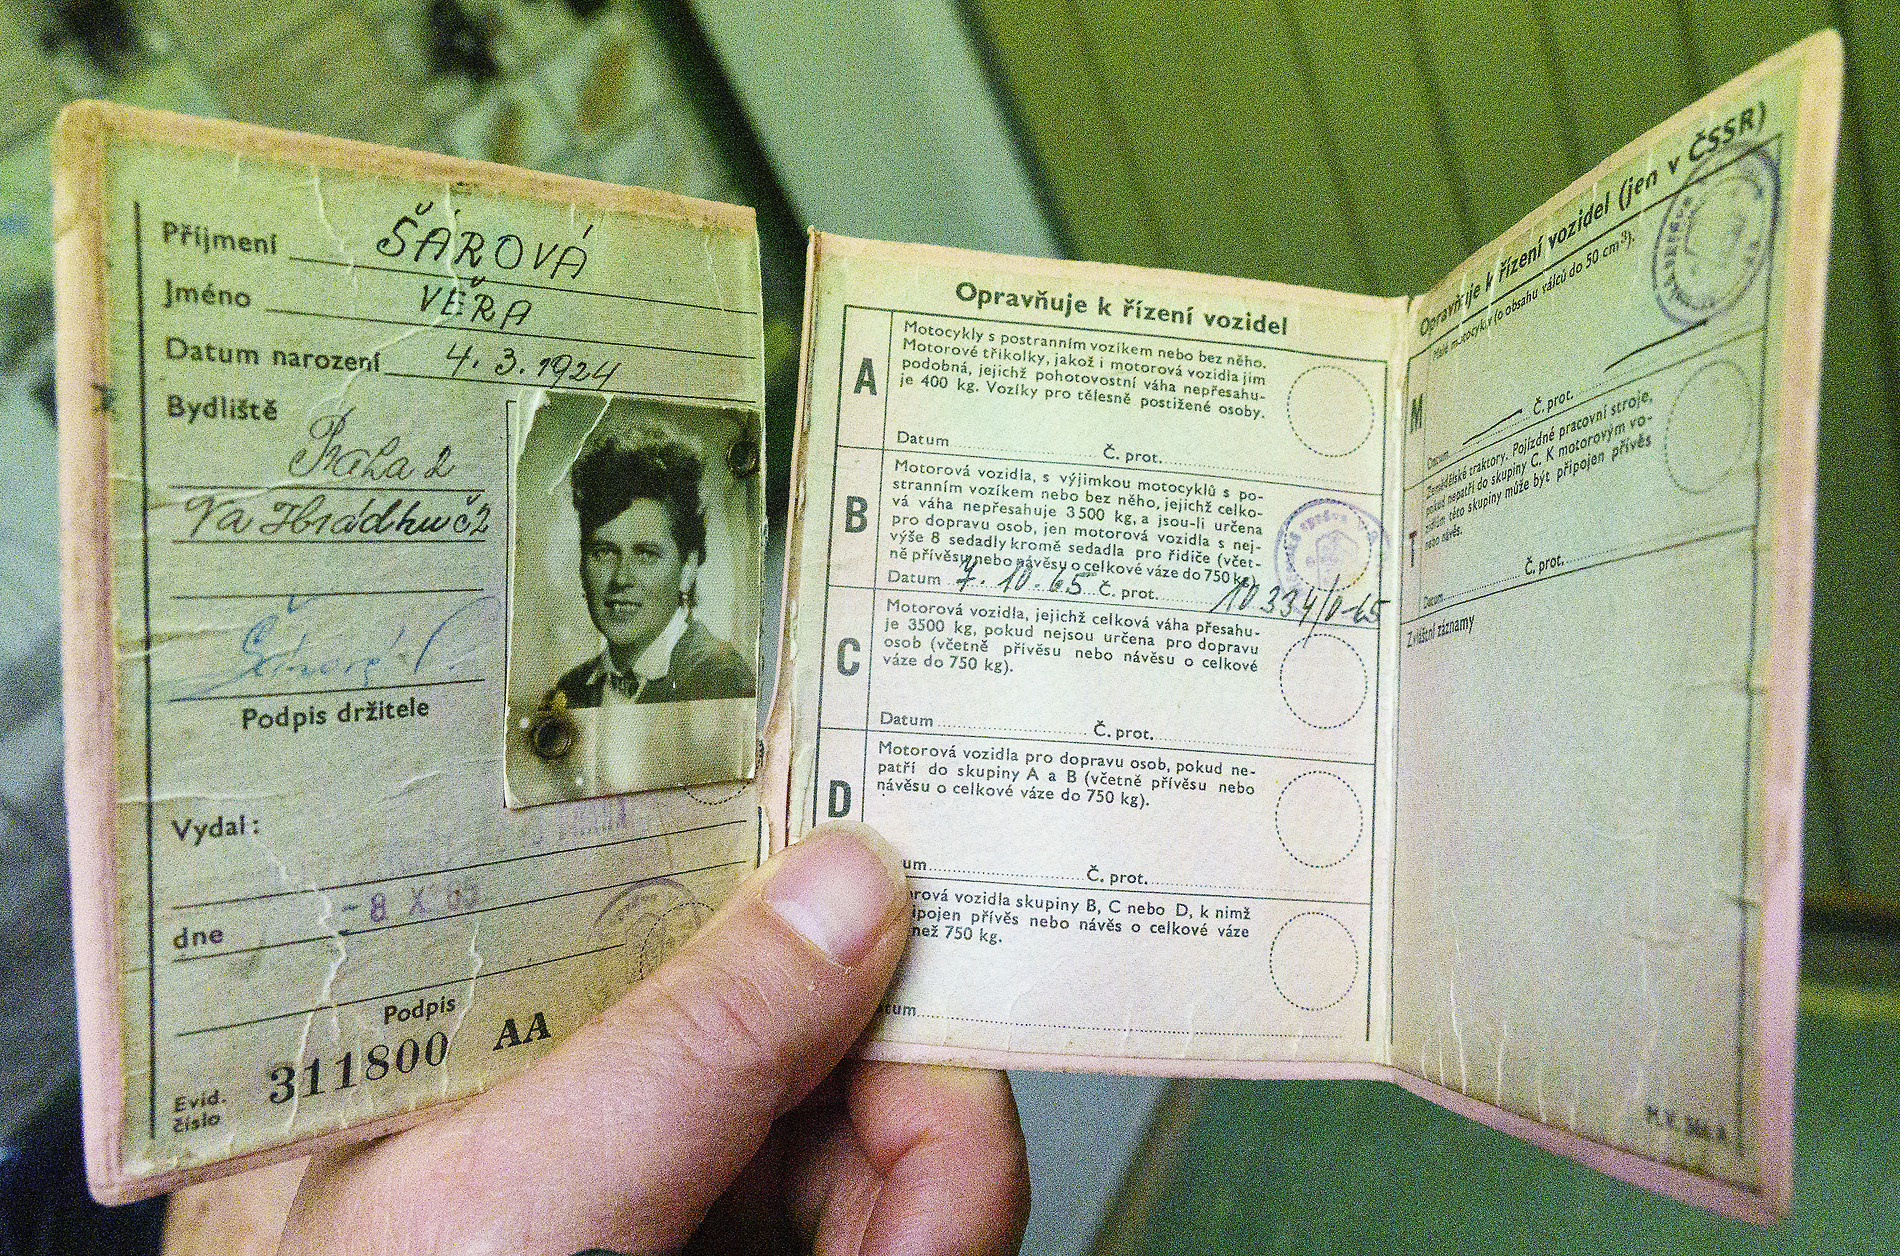 Příjmení ŠÁROVÁ
Jméno VĚRA
Datum narození 4.3.1924
Bydliště
Praha 2
Na Hrádku č 2
Podpis držitele
Vydal:
dne -8 X 65
Podpis
Evid. číslo 311800 AA
Opravňuje k řízení vozidel
A
Motocykly s postranním vozíkem nebo bez něho.
Motorové tříkolky, jakož i motorová vozidla jim
podobná, jejichž pohotovostní váha nepřesahu-
je 400 kg. Vozíky pro tělesně postižené osoby.
Datum Č. prot.
B
Motorová vozidla, s výjimkou motocyklů s po-
stranním vozíkem nebo bez něho, jejichž celko-
vá váha nepřesahuje 3500 kg, a jsou-li určena
pro dopravu osob, jen motorová vozidla s nej-
výše 8 sedadly kromě sedadla pro řidiče (včet-
ně přívěsu nebo návěsu o celkové váze do 750 kg).
Datum 7.10.65 Č. prot. 10334/0-65
C
Motorová vozidla, jejichž celková váha přesahu-
je 3500 kg, pokud nejsou určena pro dopravu
osob (včetně přívěsu nebo návěsu o celkové
váze do 750 kg).
Datum Č. prot.
D
Motorová vozidla pro dopravu osob, pokud ne-
patří do skupiny A a B (včetně přívěsu nebo
návěsu o celkové váze do 750 kg).
um Č. prot.
orová vozidla skupiny B, C nebo D, k nimž
ipojen přívěs nebo návěs o celkové váze
než 750 kg.
tum
Opravňuje k řízení vozidel (jen v ČSSR)
M
Malé motocykly (o obsahu válců do 50 cm³).
Datum Č. prot.
T
Zemědělské traktory. Pojízdné pracovní stroje,
pokud nepatří do skupiny C. K motorovým vo-
zidlům této skupiny může být připojen přívěs
nebo návěs.
Datum Č. prot.
Zvláštní záznamy